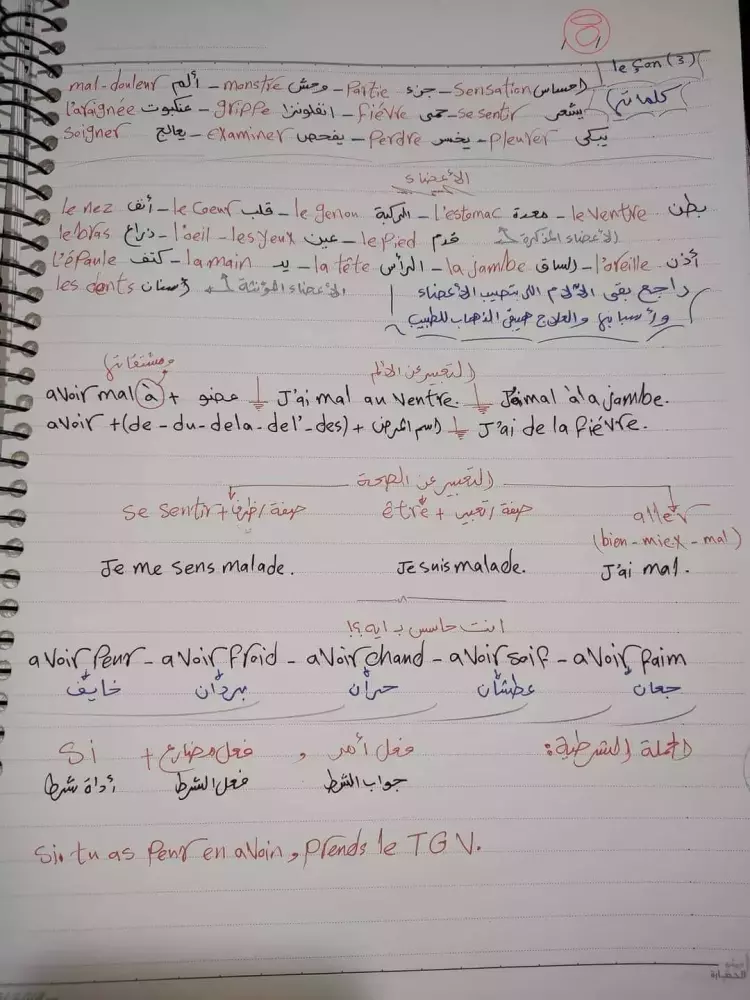 leçon (3)
mal-douleur ألم - monstre وحش - Partie جزء - Sensation احساس
كلماتي
l'araignée عنكبوت - grippe انفلونزا - fiévre حمى - se sentir يشعر
Soigner يعالج - examiner يفحص - Perdre يخسر - Pleurer يبكي
الأعضاء
le nez أنف - le Coeur قلب - le genou الركبة - l'estomac معدة - le Ventre بطن
le bras ذراع - l'oeil - les yeux عين - le Pied قدم الأعضاء المذكرة
l'épaule كتف - la main يد - la tête الرأس - la jambe الساق - l'oreille أذن
les dents أسنان الأعضاء المؤنثة
راجع بقى الآلام اللى بتصيب الأعضاء
وأسبابها والعلاج هيبقى الذهاب للطبيب
التعبير عن الألم
ومشتقاتها
avoir mal à + عضو J'ai mal au Ventre. J'ai mal à la jambe.
avoir + (de - du - dela - del' - des) + اسم المرض J'ai de la fiévre.
التعبير عن الصحة
se sentir + صفة/ظرف être + صفة/تعبير aller
(bien - miex - mal)
Je me sens malade. Je suis malade. J'ai mal.
انت حاسس بـ ايه؟!
avoir Peur - avoir froid - avoir chaud - avoir soif - avoir faim
خايف بردان حران عطشان جعان
الجملة الشرطية: Si + فعل مضارع , فعل أمر
أداة شرط فعل الشرط جواب الشرط
Si. tu as Peur en avoin, prends le TGV.